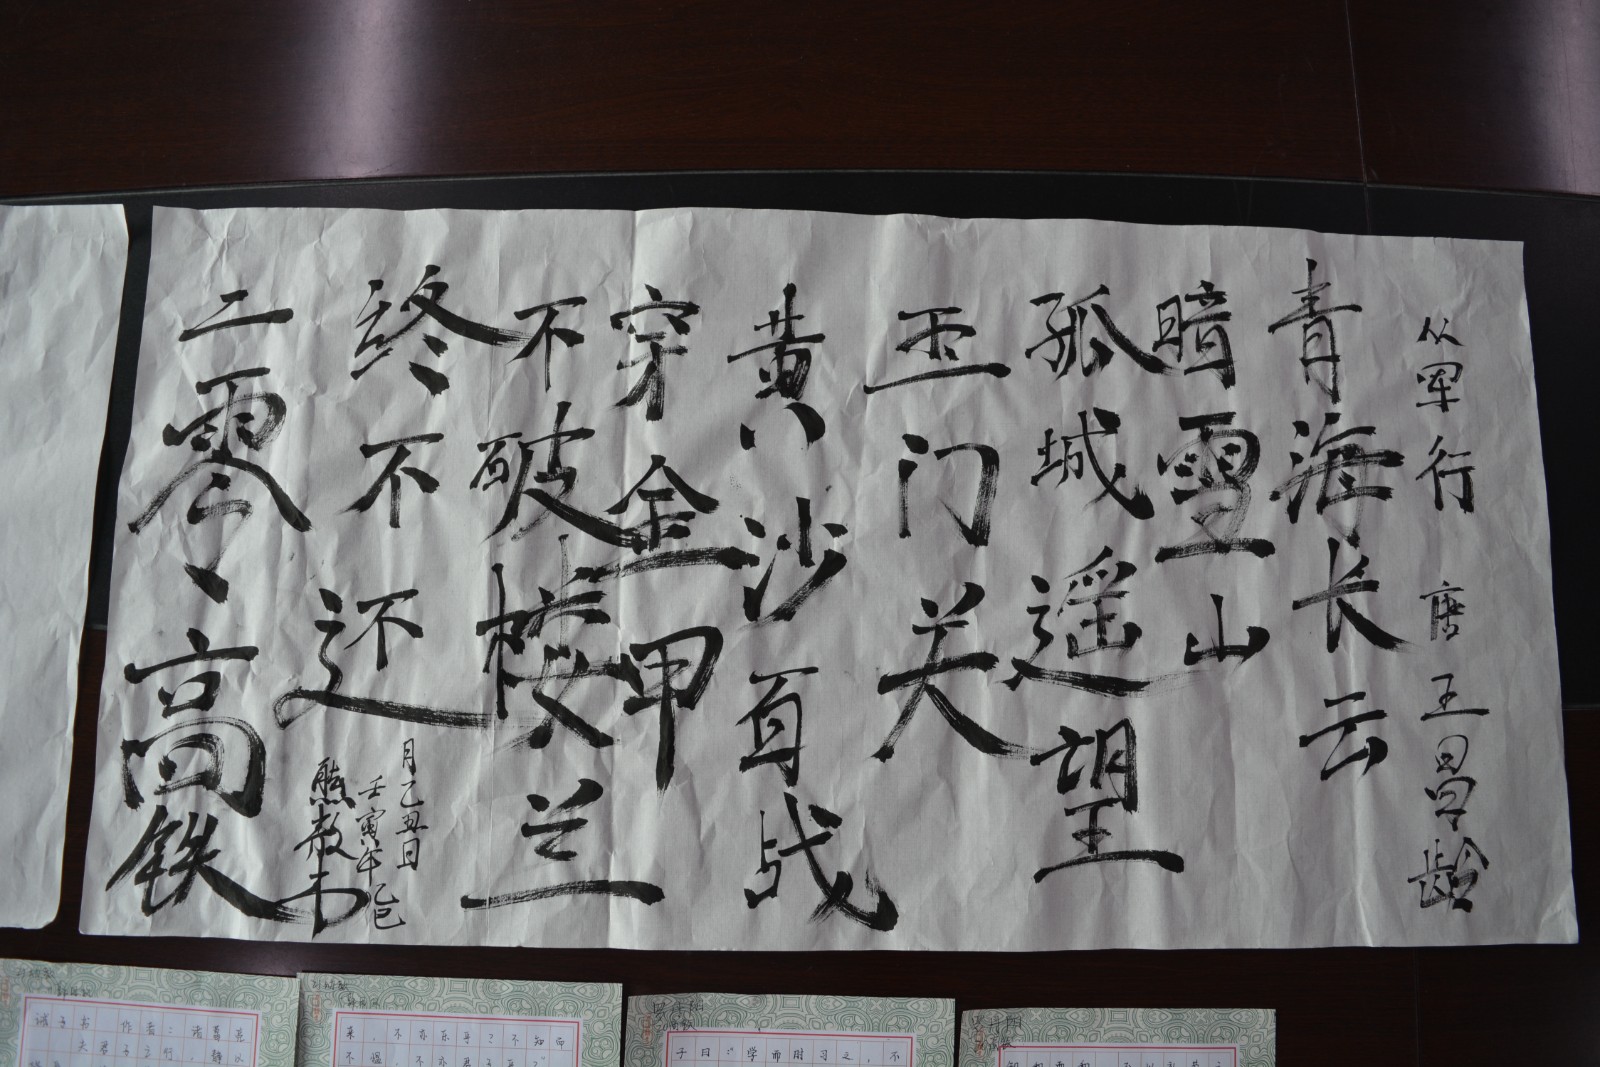 从军行 唐 王昌龄
青海长云
暗雪山
孤城遥望
玉门关
黄沙百战
穿金甲
不破楼兰
终不还
月乙丑日
壬寅年乙巳
二零高铁
诫子书 作者：诸葛亮
夫君子之行，静以
来，不亦乐乎？不知而
不愠，不亦君子乎？"
子曰："学而时习之，不